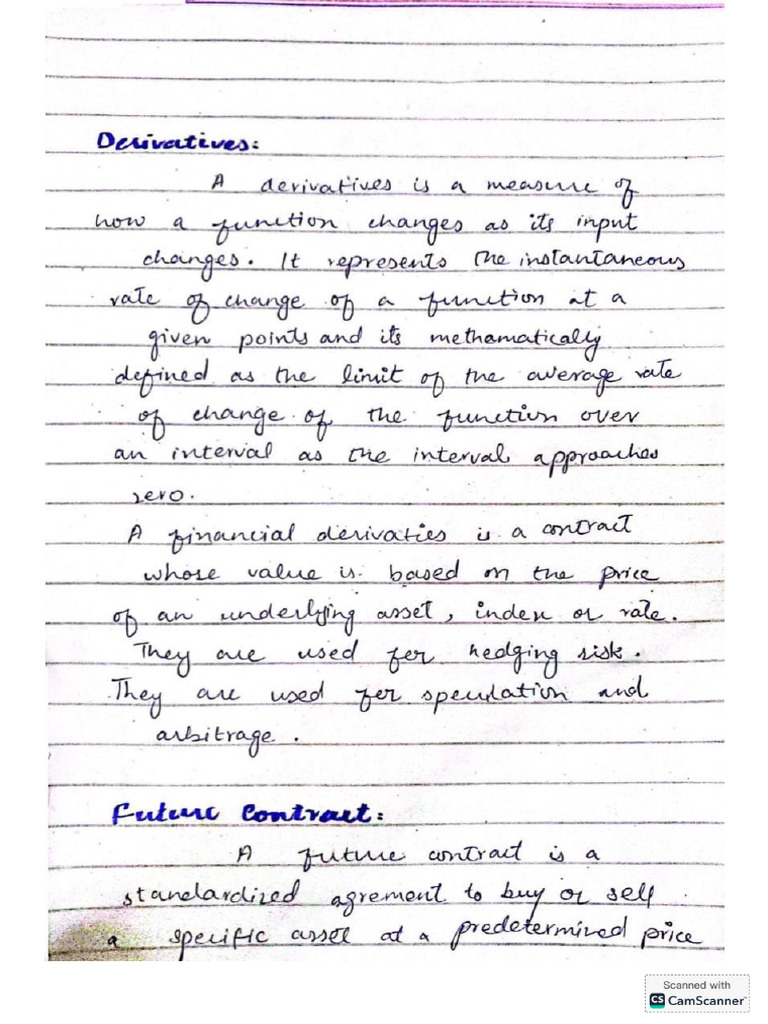 Derivatives:
A derivatives is a measure of
how a function changes as its input
changes. It represents the instantaneous
rate of change of a function at a
given points and its methamatically
defined as the limit of the average rate
of change of the function over
an interval as the interval approaches
zero.
A financial derivaties is a contract
whose value is based on the price
of an underlying asset, index or rate.
They are used for hedging risk.
They are used for speculation and
arbitrage.
Future Contract:
A future contract is a
standardized agrement to buy or sell
a specific asset at a predetermized price
Scanned with
CS CamScanner